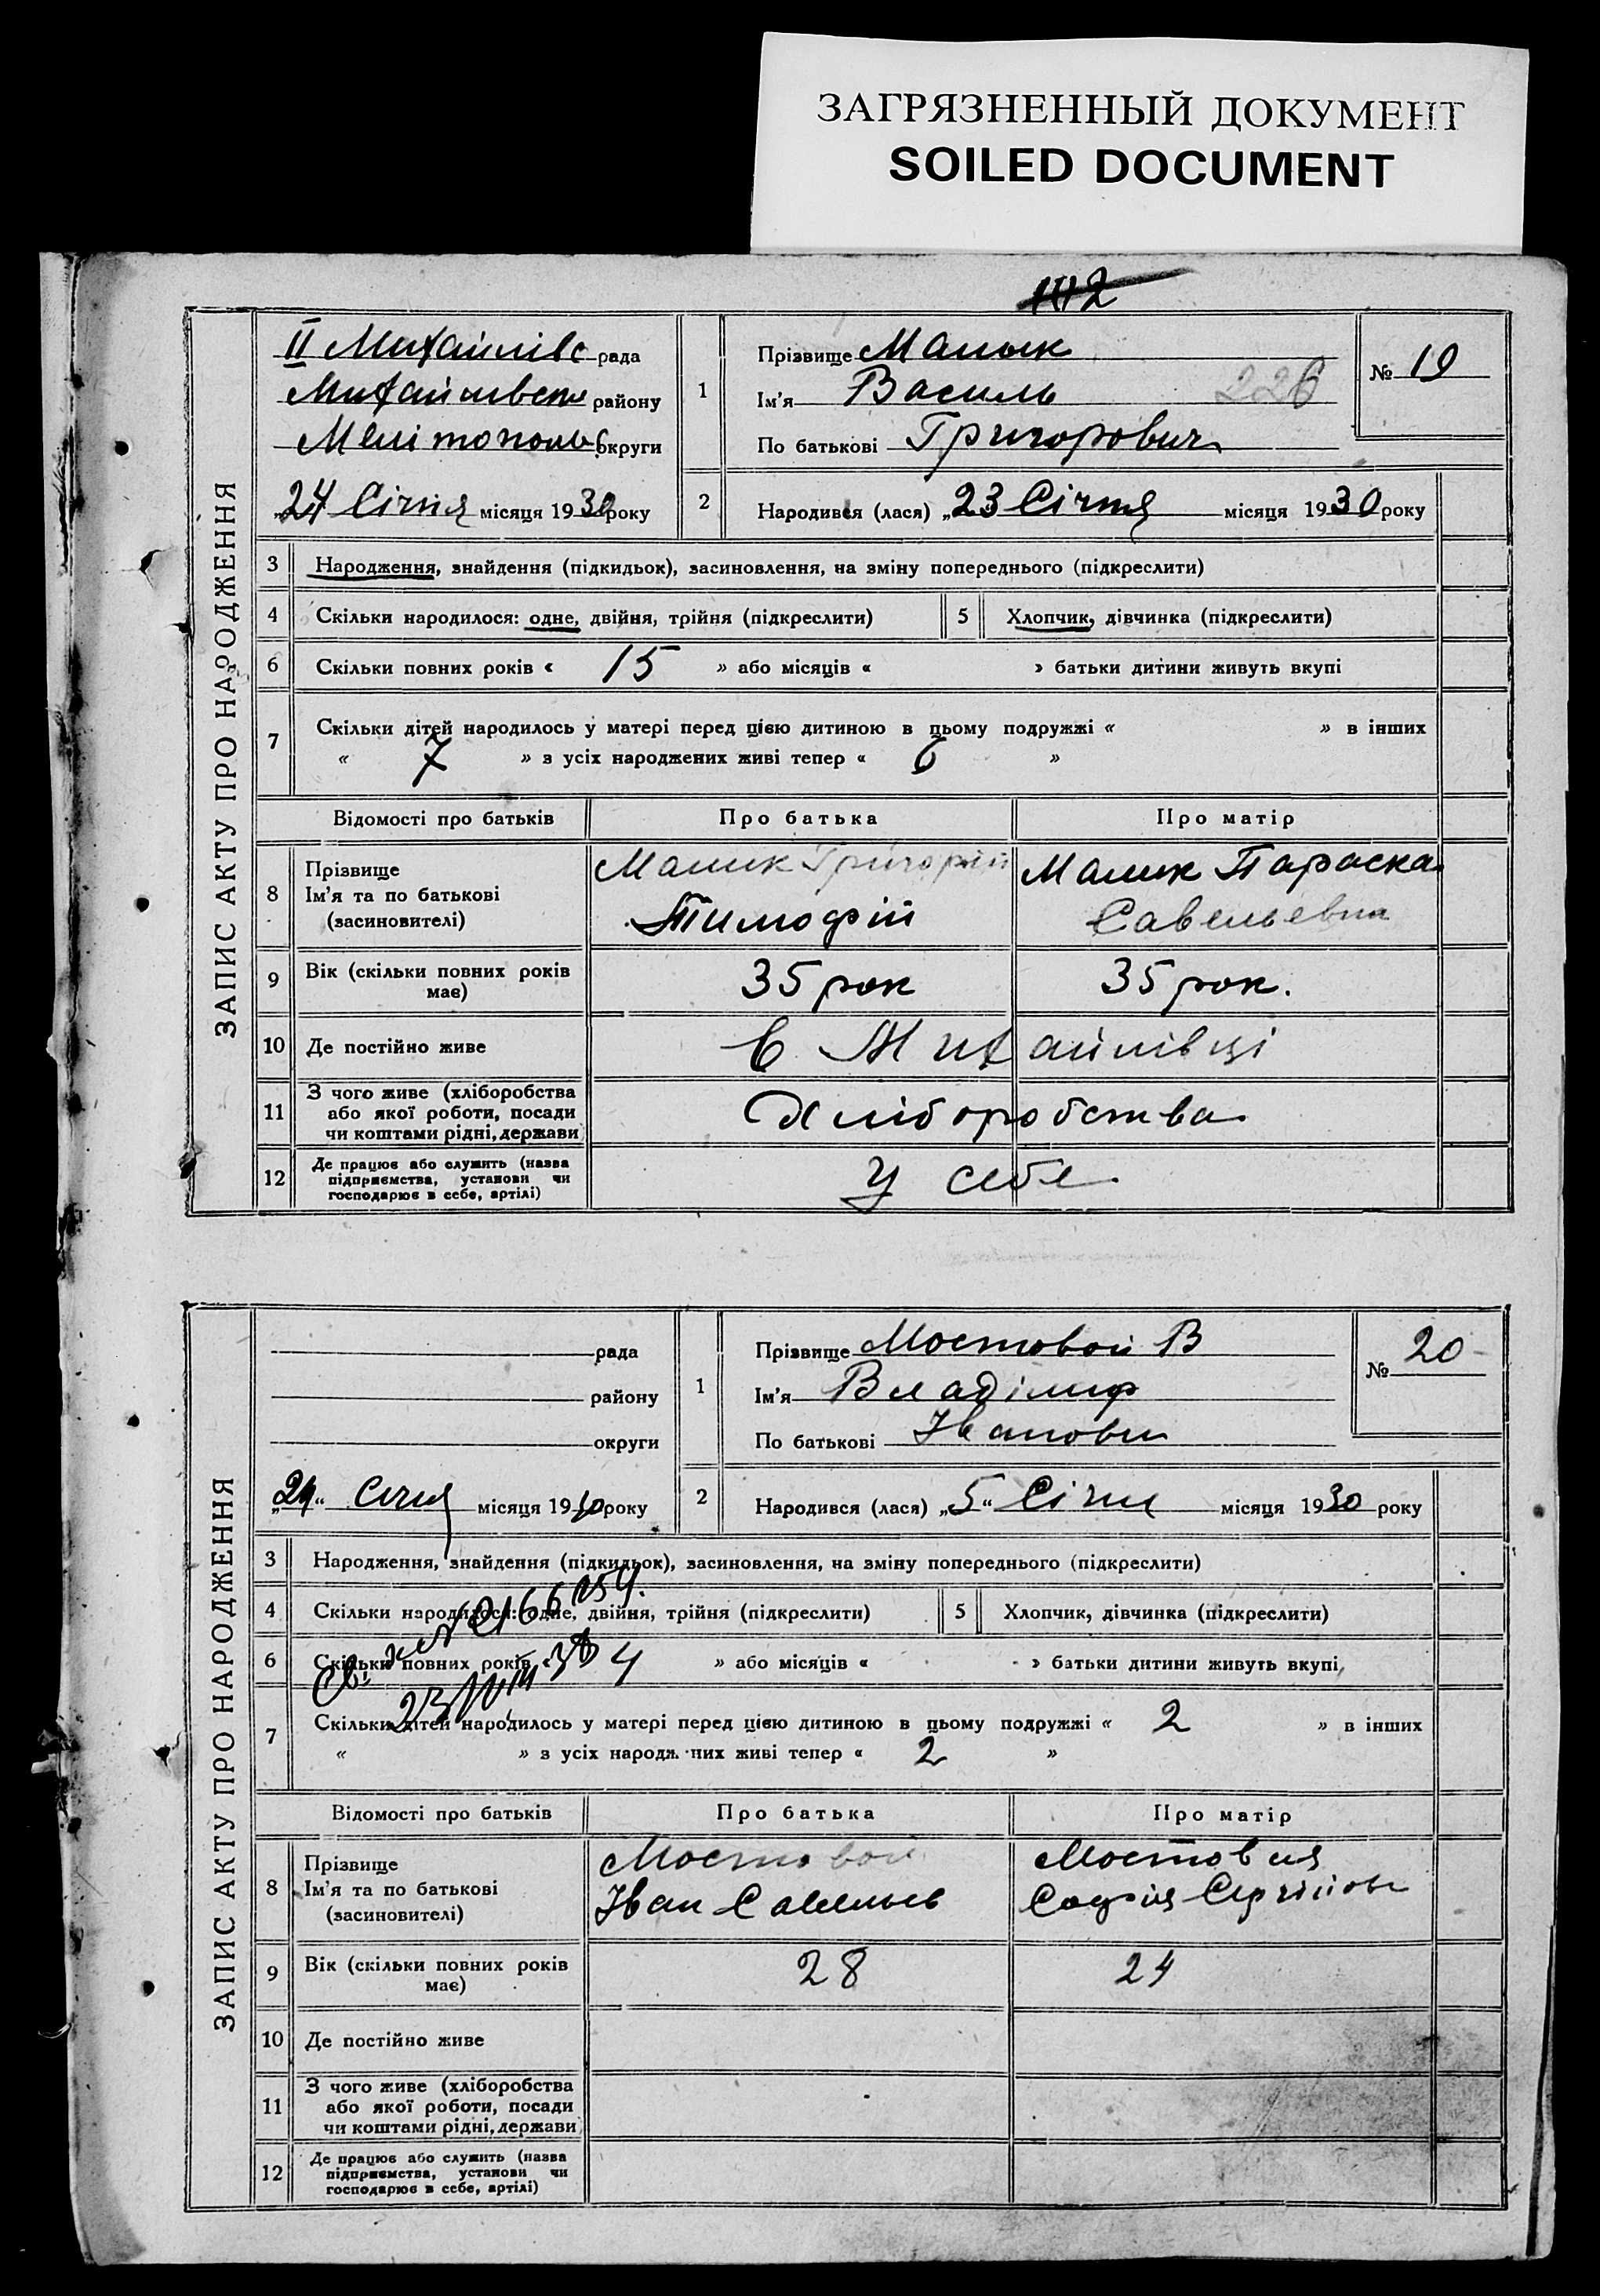 ЗАГРЯЗНЕННЫЙ ДОКУМЕНТ
SOILED DOCUMENT
ЗАПИС АКТУ ПРО НАРОДЖЕННЯ
II Михайлівс рада
Михайлівськ району
Мелітопольс округи
„24 Січня місяця 1930 року
1
Прізвище Малик
Ім'я Василь 226
По батькові Григорович
№ 19
2
Народився (лася) „23 Січня місяця 1930 року
3 Народження, знайдення (підкидьок), засиновлення, на зміну попереднього (підкреслити)
4 Скільки народилося: одне, двійня, трійня (підкреслити) 5 Хлопчик, дівчинка (підкреслити)
6 Скільки повних років « 15 » або місяців « » батьки дитини живуть вкупі
7 Скільки дітей народилось у матері перед цією дитиною в цьому подружжі « » в інших
« 7 » з усіх народжених живі тепер « 6 »
Відомості про батьків Про батька Про матір
8 Прізвище
Ім'я та по батькові
(засиновителі)
Малик Григорій
Тимофій
Малик Параска
Савельевна
9 Вік (скільки повних років
має)
35 рок 35 рок.
10 Де постійно живе в Михайлівці
11 З чого живе (хліборобства
або якої роботи, посади
чи коштами рідні, держави
Хліборобства
12 Де працює або служить (назва
підприємства, установи чи
господарює в себе, артілі)
У себе
ЗАПИС АКТУ ПРО НАРОДЖЕННЯ
рада
району
округи
„24“ Січня місяця 1930 року
1
Прізвище Мостовой В
Ім'я Владімир
По батькові Іванови
№ 20
2
Народився (лася) „5“ Січня місяця 1930 року
3 Народження, знайдення (підкидьок), засиновлення, на зміну попереднього (підкреслити)
4 Скільки народилося: одне, двійня, трійня (підкреслити) 5 Хлопчик, дівчинка (підкреслити)
6 Скільки повних років « 4 » або місяців « » батьки дитини живуть вкупі
7 Скільки дітей народилось у матері перед цією дитиною в цьому подружжі « 2 » в інших
« » з усіх народж них живі тепер « 2 »
Відомості про батьків Про батька Про матір
8 Прізвище
Ім'я та по батькові
(засиновителі)
Мостовой
Іван Савельев
Мостовая
Софія
9 Вік (скільки повних років
має)
28 24
10 Де постійно живе
11 З чого живе (хліборобства
або якої роботи, посади
чи коштами рідні, держави
12 Де працює або служить (назва
підприємства, установи чи
господарює в себе, артілі)